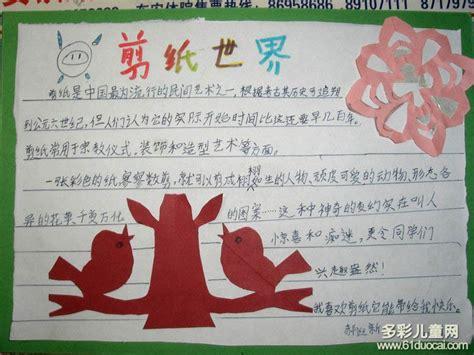 东安体院售票热线: 86958686、89107111 8717979
剪纸世界
剪纸是中国最为流行的民间艺术之一,根据考古其历史可追朔
到公元六世纪,但人们认为它的实际开始时间比这还要早几百年。
剪纸常用于宗教仪式、装饰和造型艺术等方面。
一张彩色的纸寥寥数剪,就可以剪成栩栩如生的人物、顽皮可爱的动物、形态各
异的花草千变万化的图案……这种神奇的
惊喜和痴迷,更令同学们
兴趣盎然!
我喜欢剪纸它能带给我快乐。
多彩儿童网
www.61duocai.com